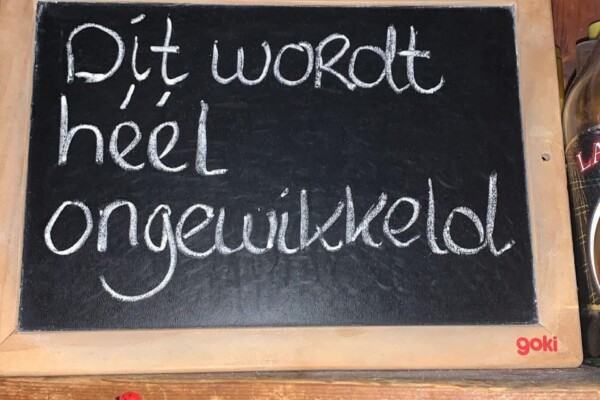 Dit wordt
héél
ongewikkeld
goki
LA